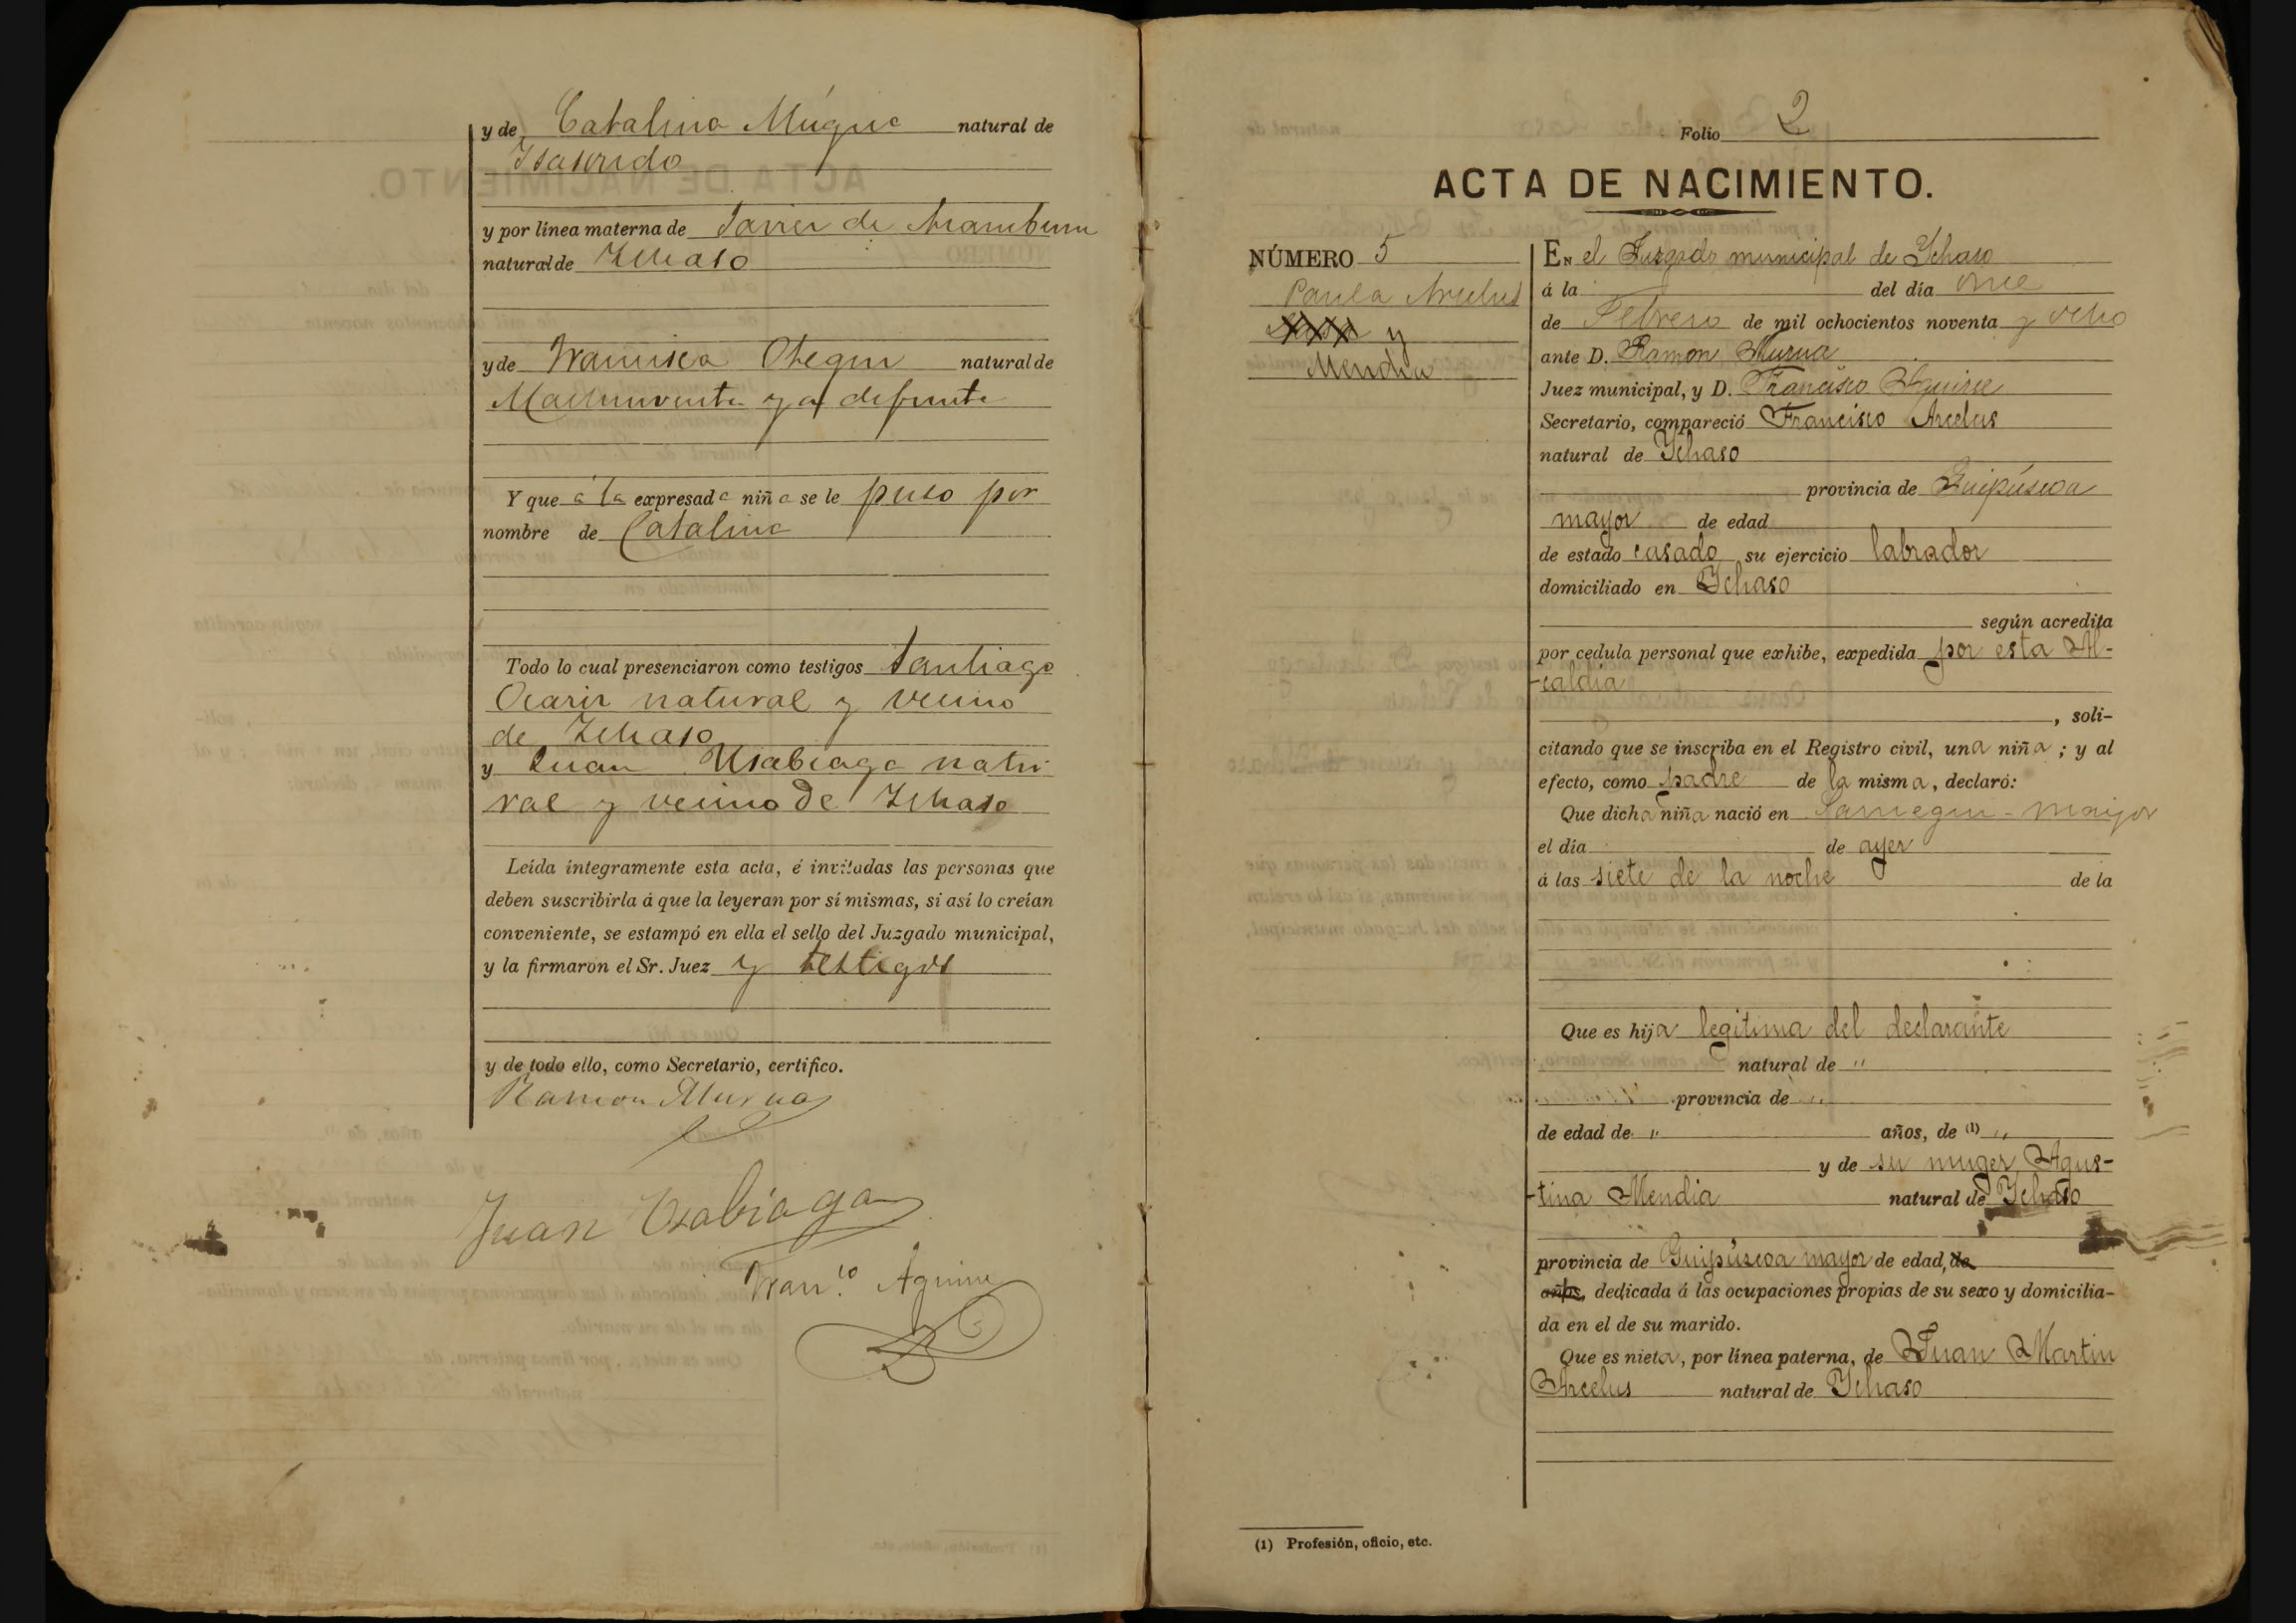 y de Catalina Múgica natural de
Isasondo
y por línea materna de Javier de Aramburu
natural de Ichaso
y de Francisca Otegui natural de
ya difunta
Y que á la expresada niña se le puso por
nombre de Catalina
Todo lo cual presenciaron como testigos Santiago
Ocariz natural y vecino
de Ichaso
y Juan Usabiaga natu-
ral y vecino de Ichaso
Leída íntegramente esta acta, é invitadas las personas que
deben suscribirla á que la leyeran por sí mismas, si así lo creían
conveniente, se estampó en ella el sello del Juzgado municipal,
y la firmaron el Sr. Juez y testigos
y de todo ello, como Secretario, certifico.
Ramon Murua
Juan Usabiaga
Fran.co Aguirre
Folio 2
ACTA DE NACIMIENTO.
NÚMERO 5
Paula Arcelus
y
Mendia
EN el Juzgado municipal de Ychaso
á la del día once
de Febrero de mil ochocientos noventa y ocho
ante D. Ramon Murua
Juez municipal, y D. Francisco Aguirre
Secretario, compareció Francisco Arcelus
natural de Ychaso
provincia de Guipúscoa
mayor de edad
de estado casado su ejercicio labrador
domiciliado en Ychaso
según acredita
por cedula personal que exhibe, expedida por esta Al-
-caldia
, soli-
citando que se inscriba en el Registro civil, una niña ; y al
efecto, como padre de la misma, declaró:
Que dicha niña nació en mayor
el día de ayer
á las siete de la noche de la
Que es hija legitima del declarante
natural de "
provincia de "
de edad de " años, de (1) "
y de su muger Agus-
-tina Mendia natural de Ychaso
provincia de Guipúscoa mayor de edad, de
años, dedicada á las ocupaciones propias de su sexo y domicilia-
da en el de su marido.
Que es nieta, por línea paterna, de Juan Martin
Arcelus natural de Ychaso
(1) Profesión, oficio, etc.